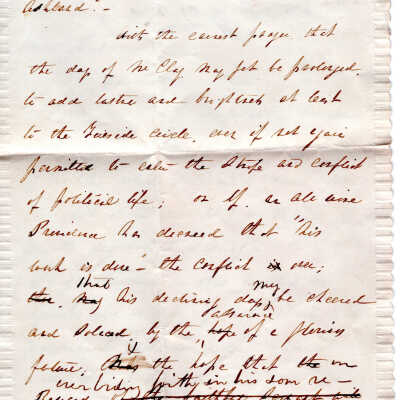 Ashland." -
with the earnest prayer that
the days of Mr Clay may yet be prolonged.
to add lustre and brightness at least
to the fireside circle, even if not again
permitted to calm the Strife and conflict
of political life; or if an all wise
Providence has decreed that "his
work is done" - the conflict is over;
that may his declining days be cheered
and solaced, by the hope assurance of a glorious
future; & the hope that the
in his